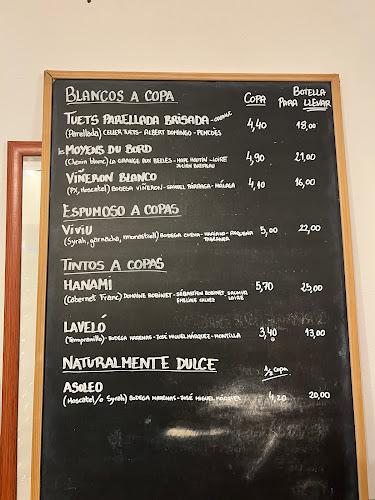 BLANCOS A COPA COPA BOTELLA PARA LLEVAR
TUETS PARELLADA BRISADA - ORANGE 4,40 18,00
(Parellada) CELLER TUETS - ALBERT DOMINGO - PENEDÈS
MOYENS DU BORD 4,90 21,00
(Chenin blanc) LA GRANGE AUX BELLES - LOIRE
VIÑERON BLANCO 4,10 16,00
(PX, Moscatel) BODEGA VIÑERON - SAMUEL PÁRRAGA - MÁLAGA
ESPUMOSO A COPAS
VIVIU 5,00 22,00
(Syrah, garnacha, monastrell) BODEGA CUEVA - MARIANO - REQUENA
TINTOS A COPAS
HANAMI 5,70 25,00
(Cabernet Franc) DOMAINE BOBINET - SÉBASTIEN BOBINET SAUMUR
EMELINE CALVEZ LOIRE
LAVELÓ 3,40 13,00
(Tempranillo) - BODEGA MARENAS - JOSÉ MIGUEL MÁRQUEZ - MONTILLA
NATURALMENTE DULCE ½ copa
ASOLEO 4,20 20,00
(Moscatel y/o Syrah) BODEGA MARENAS - JOSÉ MIGUEL MÁRQUEZ